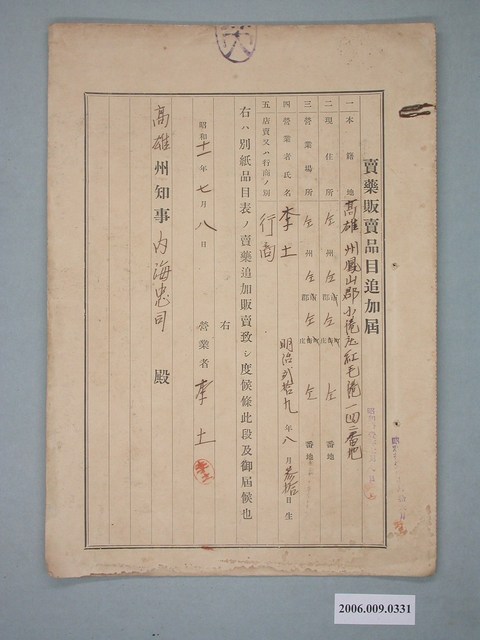 賣藥販賣品目追加屆
一 本籍地 高雄州鳳山郡小港庄紅毛港一四二番地
二 現住所 仝州仝郡仝庄仝番地
三 營業場所 仝州仝郡仝庄仝番地
四 營業者氏名 李土 明治貳拾九年八月參拾日生
五 店賣又ハ行商ノ別 行商
右ハ別紙品目表ノ賣藥追加販賣致シ度候條此段及御屆候也
昭和十一年七月八日
右
營業者 李土
高雄州知事 內海忠司 殿
2006.009.0331